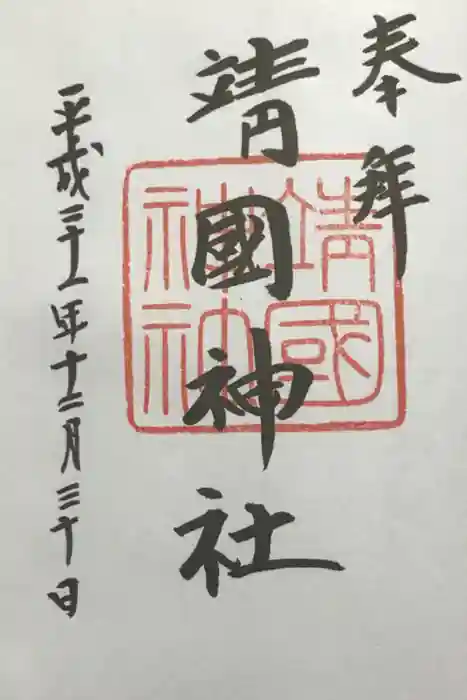 奉拝
靖國神社
靖國
神社
平成三十一年十二月三十日